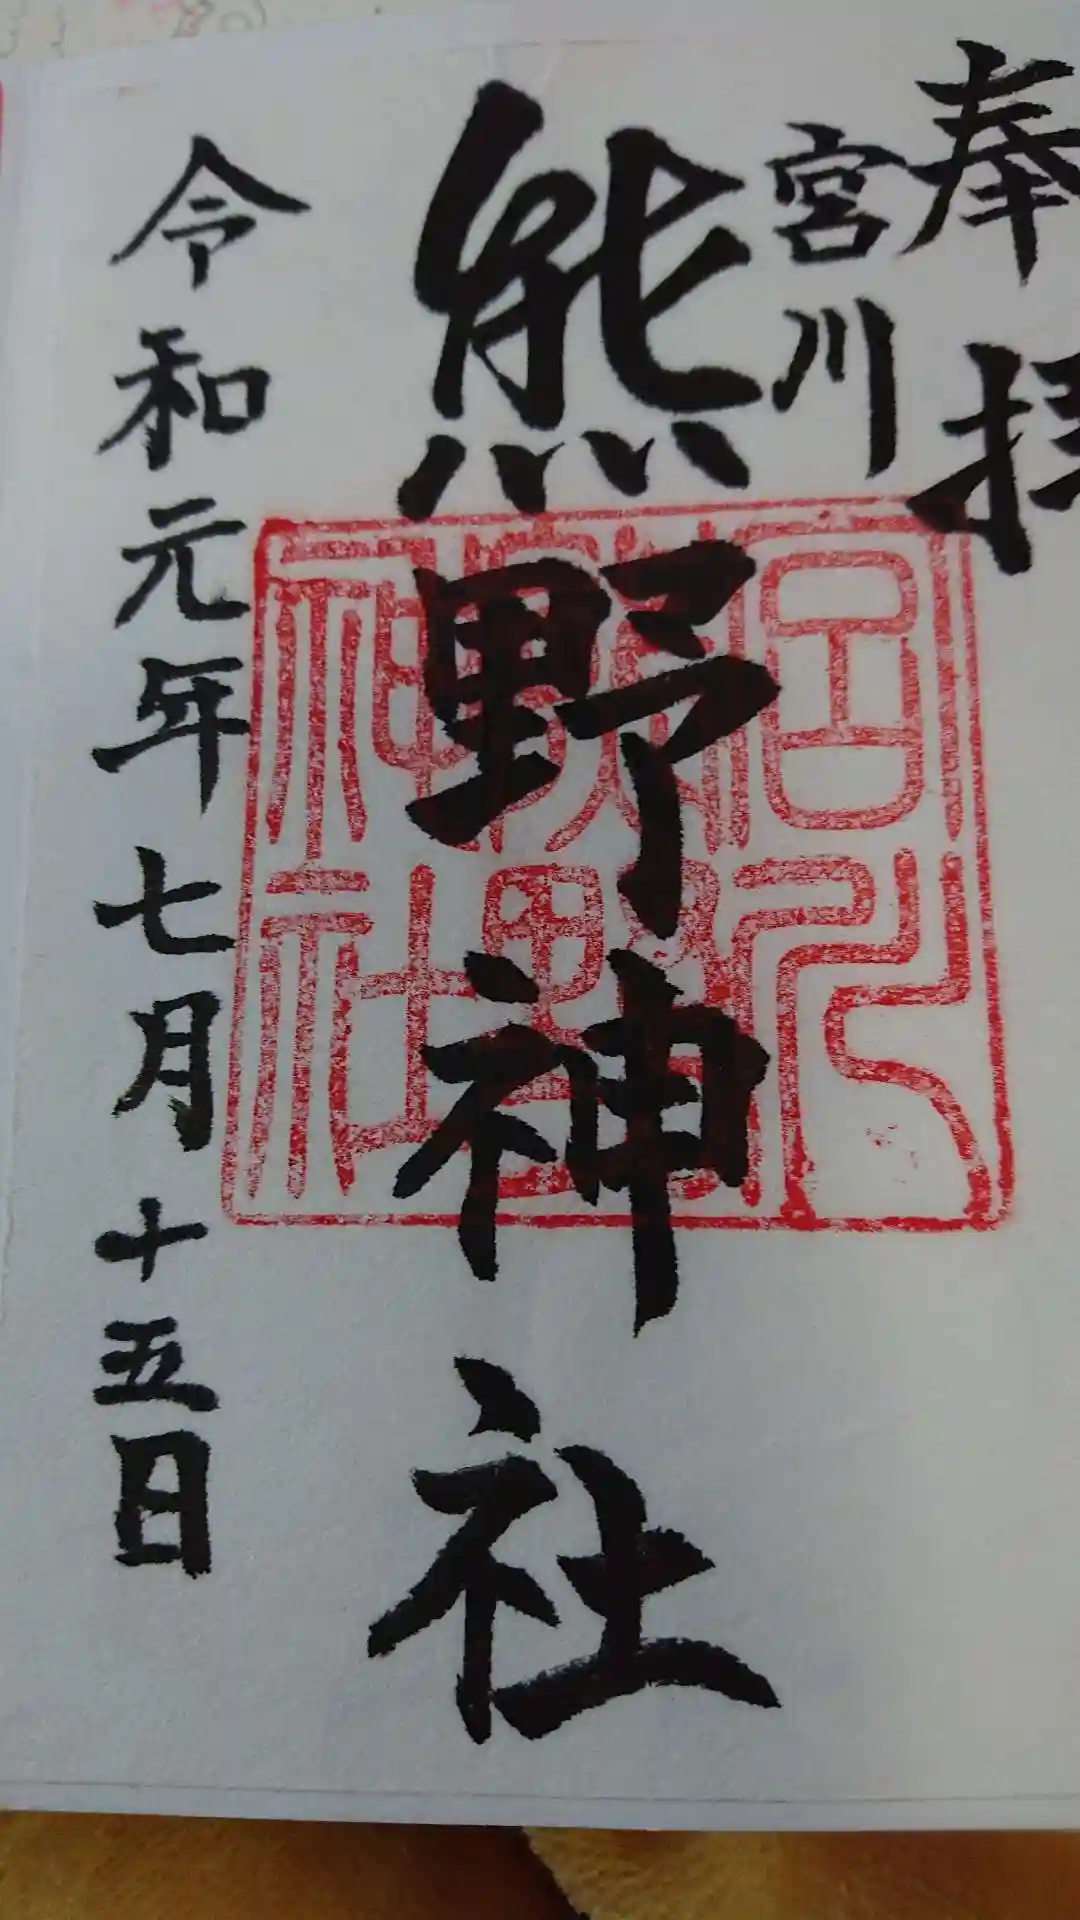 奉拝
宮川
熊野神社
宮川熊野神社
令和元年七月十五日